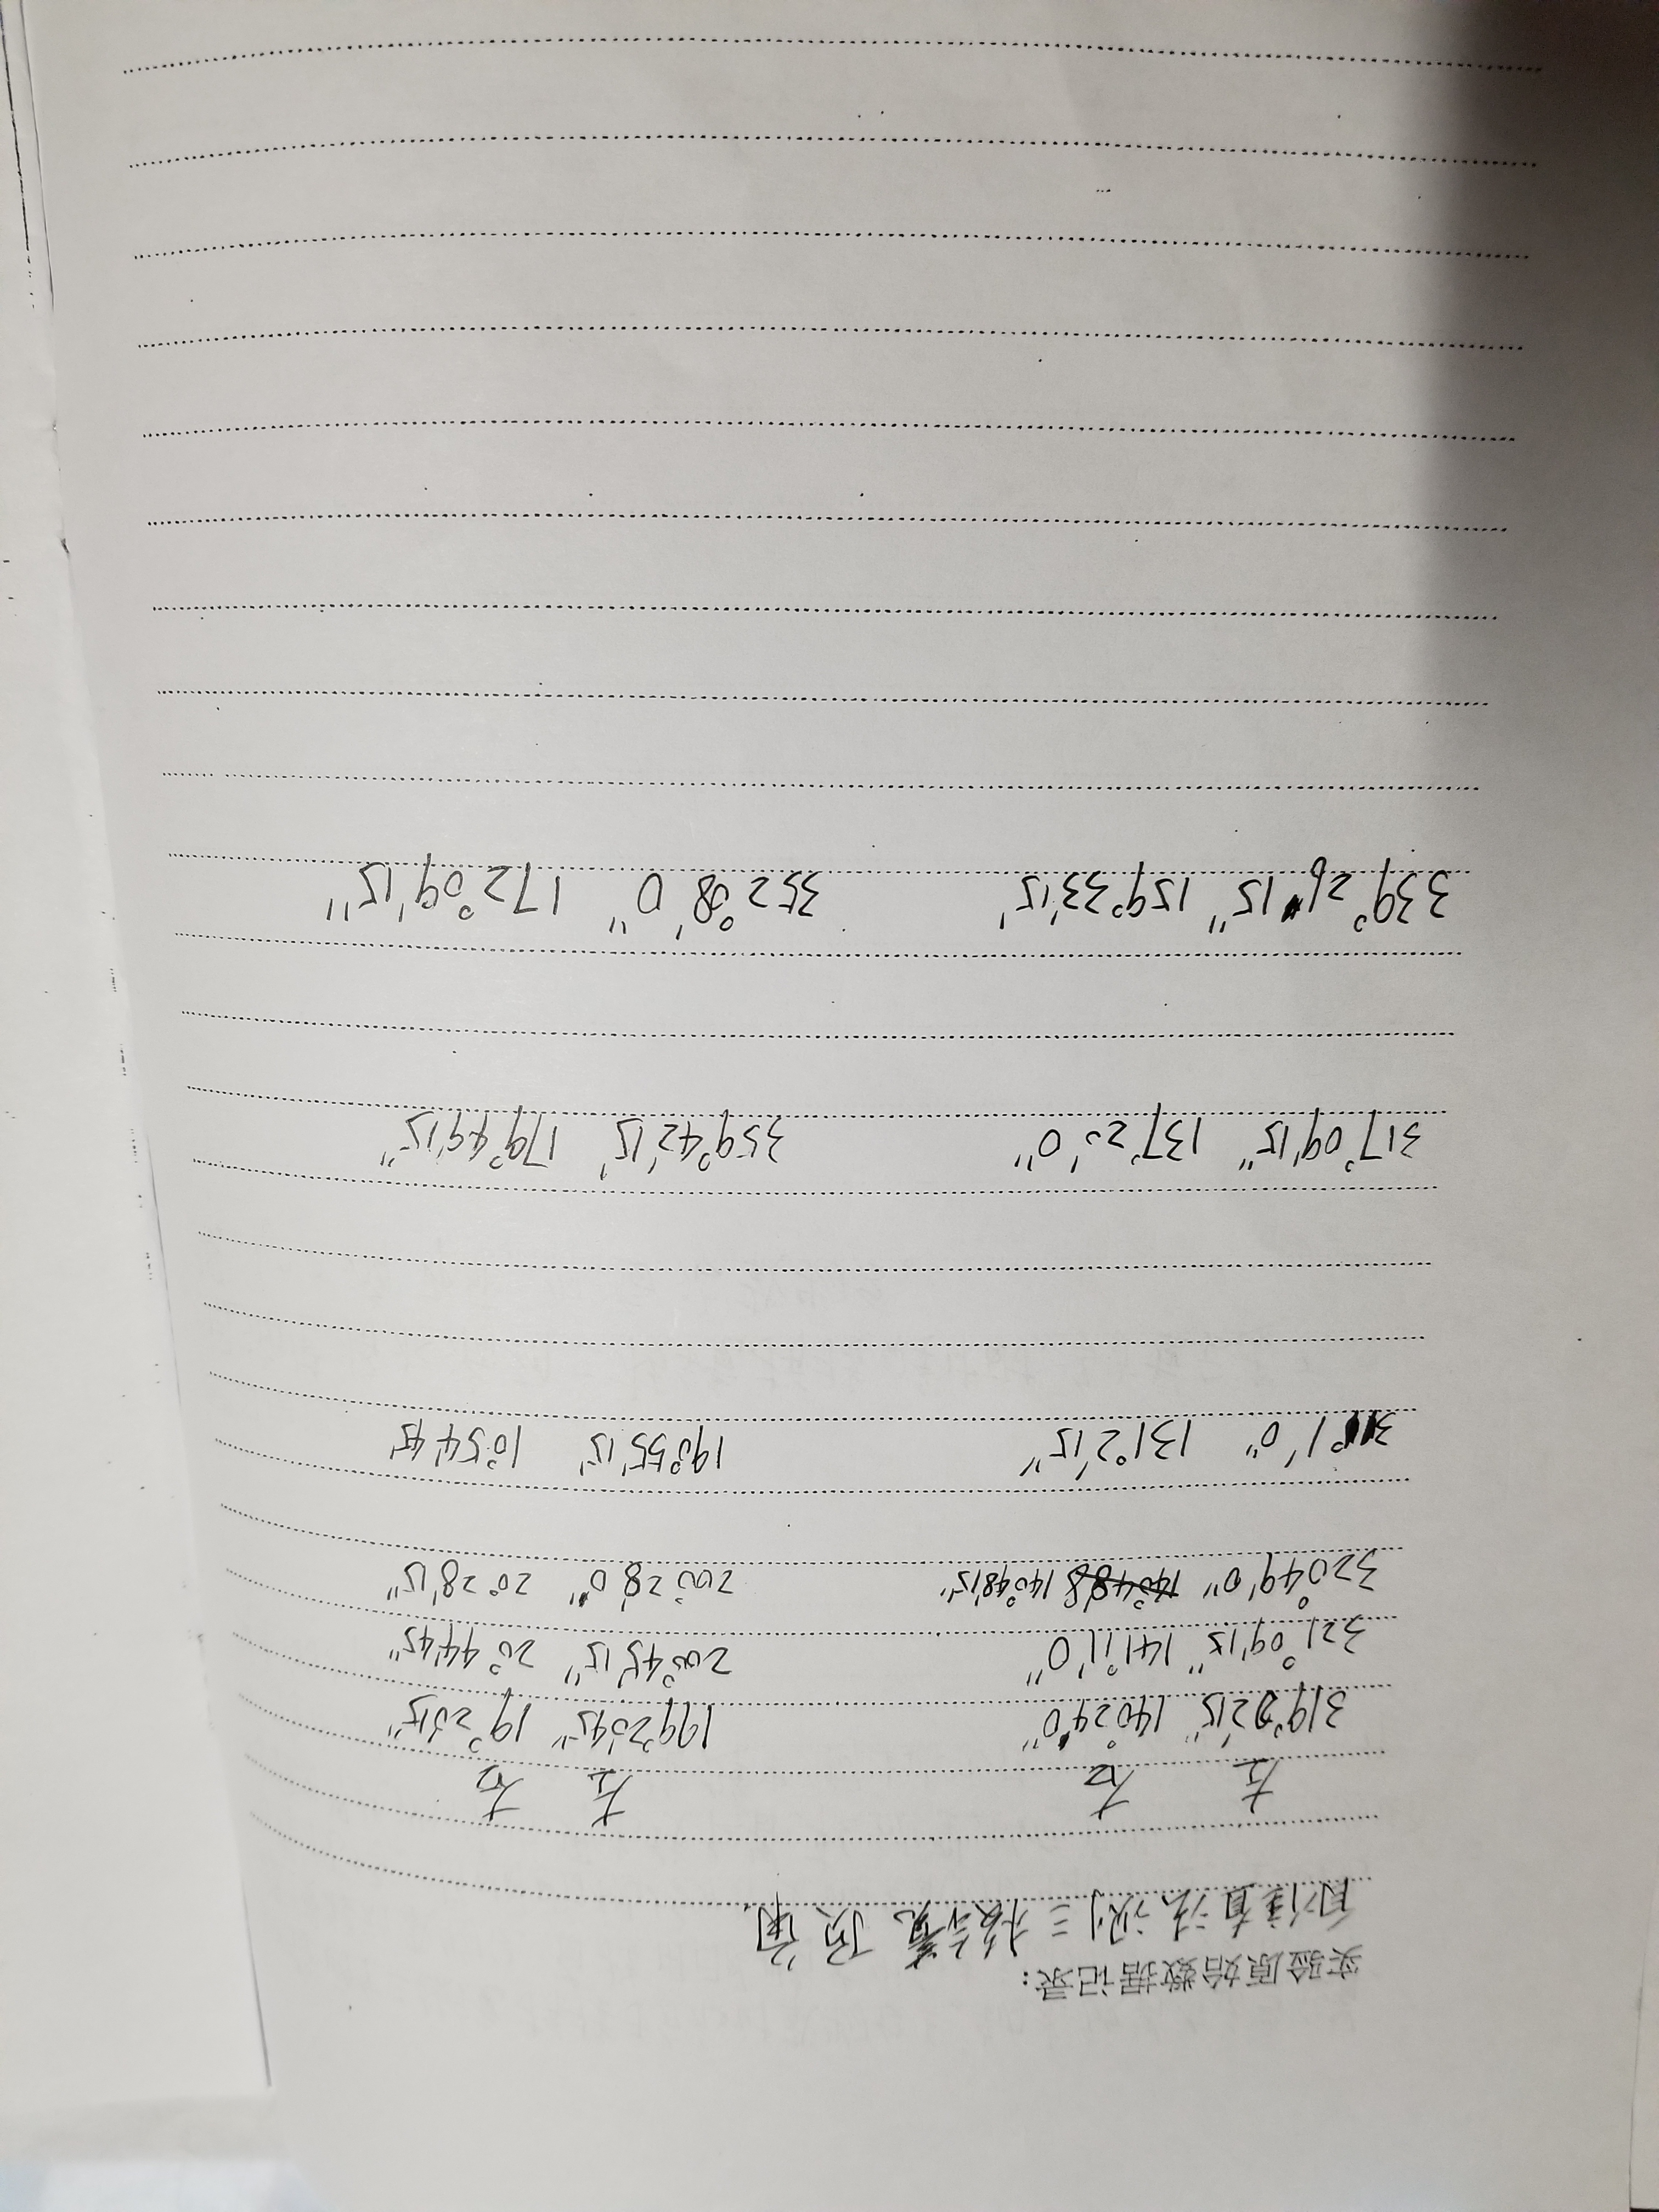 实验原始数据记录:
自准直法测三棱镜顶角
左 右 左 右
319°22'15" 140°24'0" 199°20'45" 19°20'15"
321°09'15" 141°11'0" 200°45'15" 20°44'45"
320°49'0" 140°48'15" 200°28'0" 20°28'15"
311°1'0" 131°2'15" 190°55'15" 10°54'45"
317°09'15" 137°20'0" 359°42'15' 179°49'15"
339°26'15" 159°33'15' 352°08'0" 172°09'15"